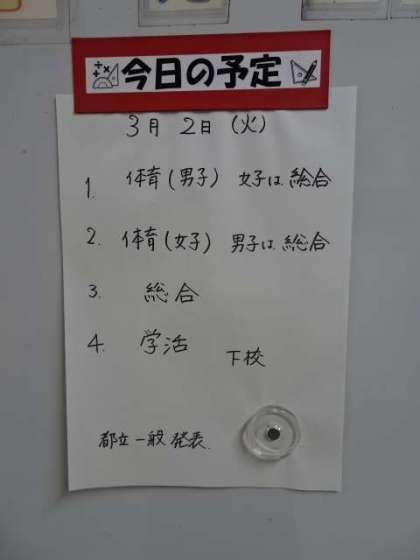 今日の予定
3月 2日 (火)
1. 体育(男子) 女子は総合
2. 体育(女子) 男子は総合
3. 総合
4. 学活
下校
都立一般発表.